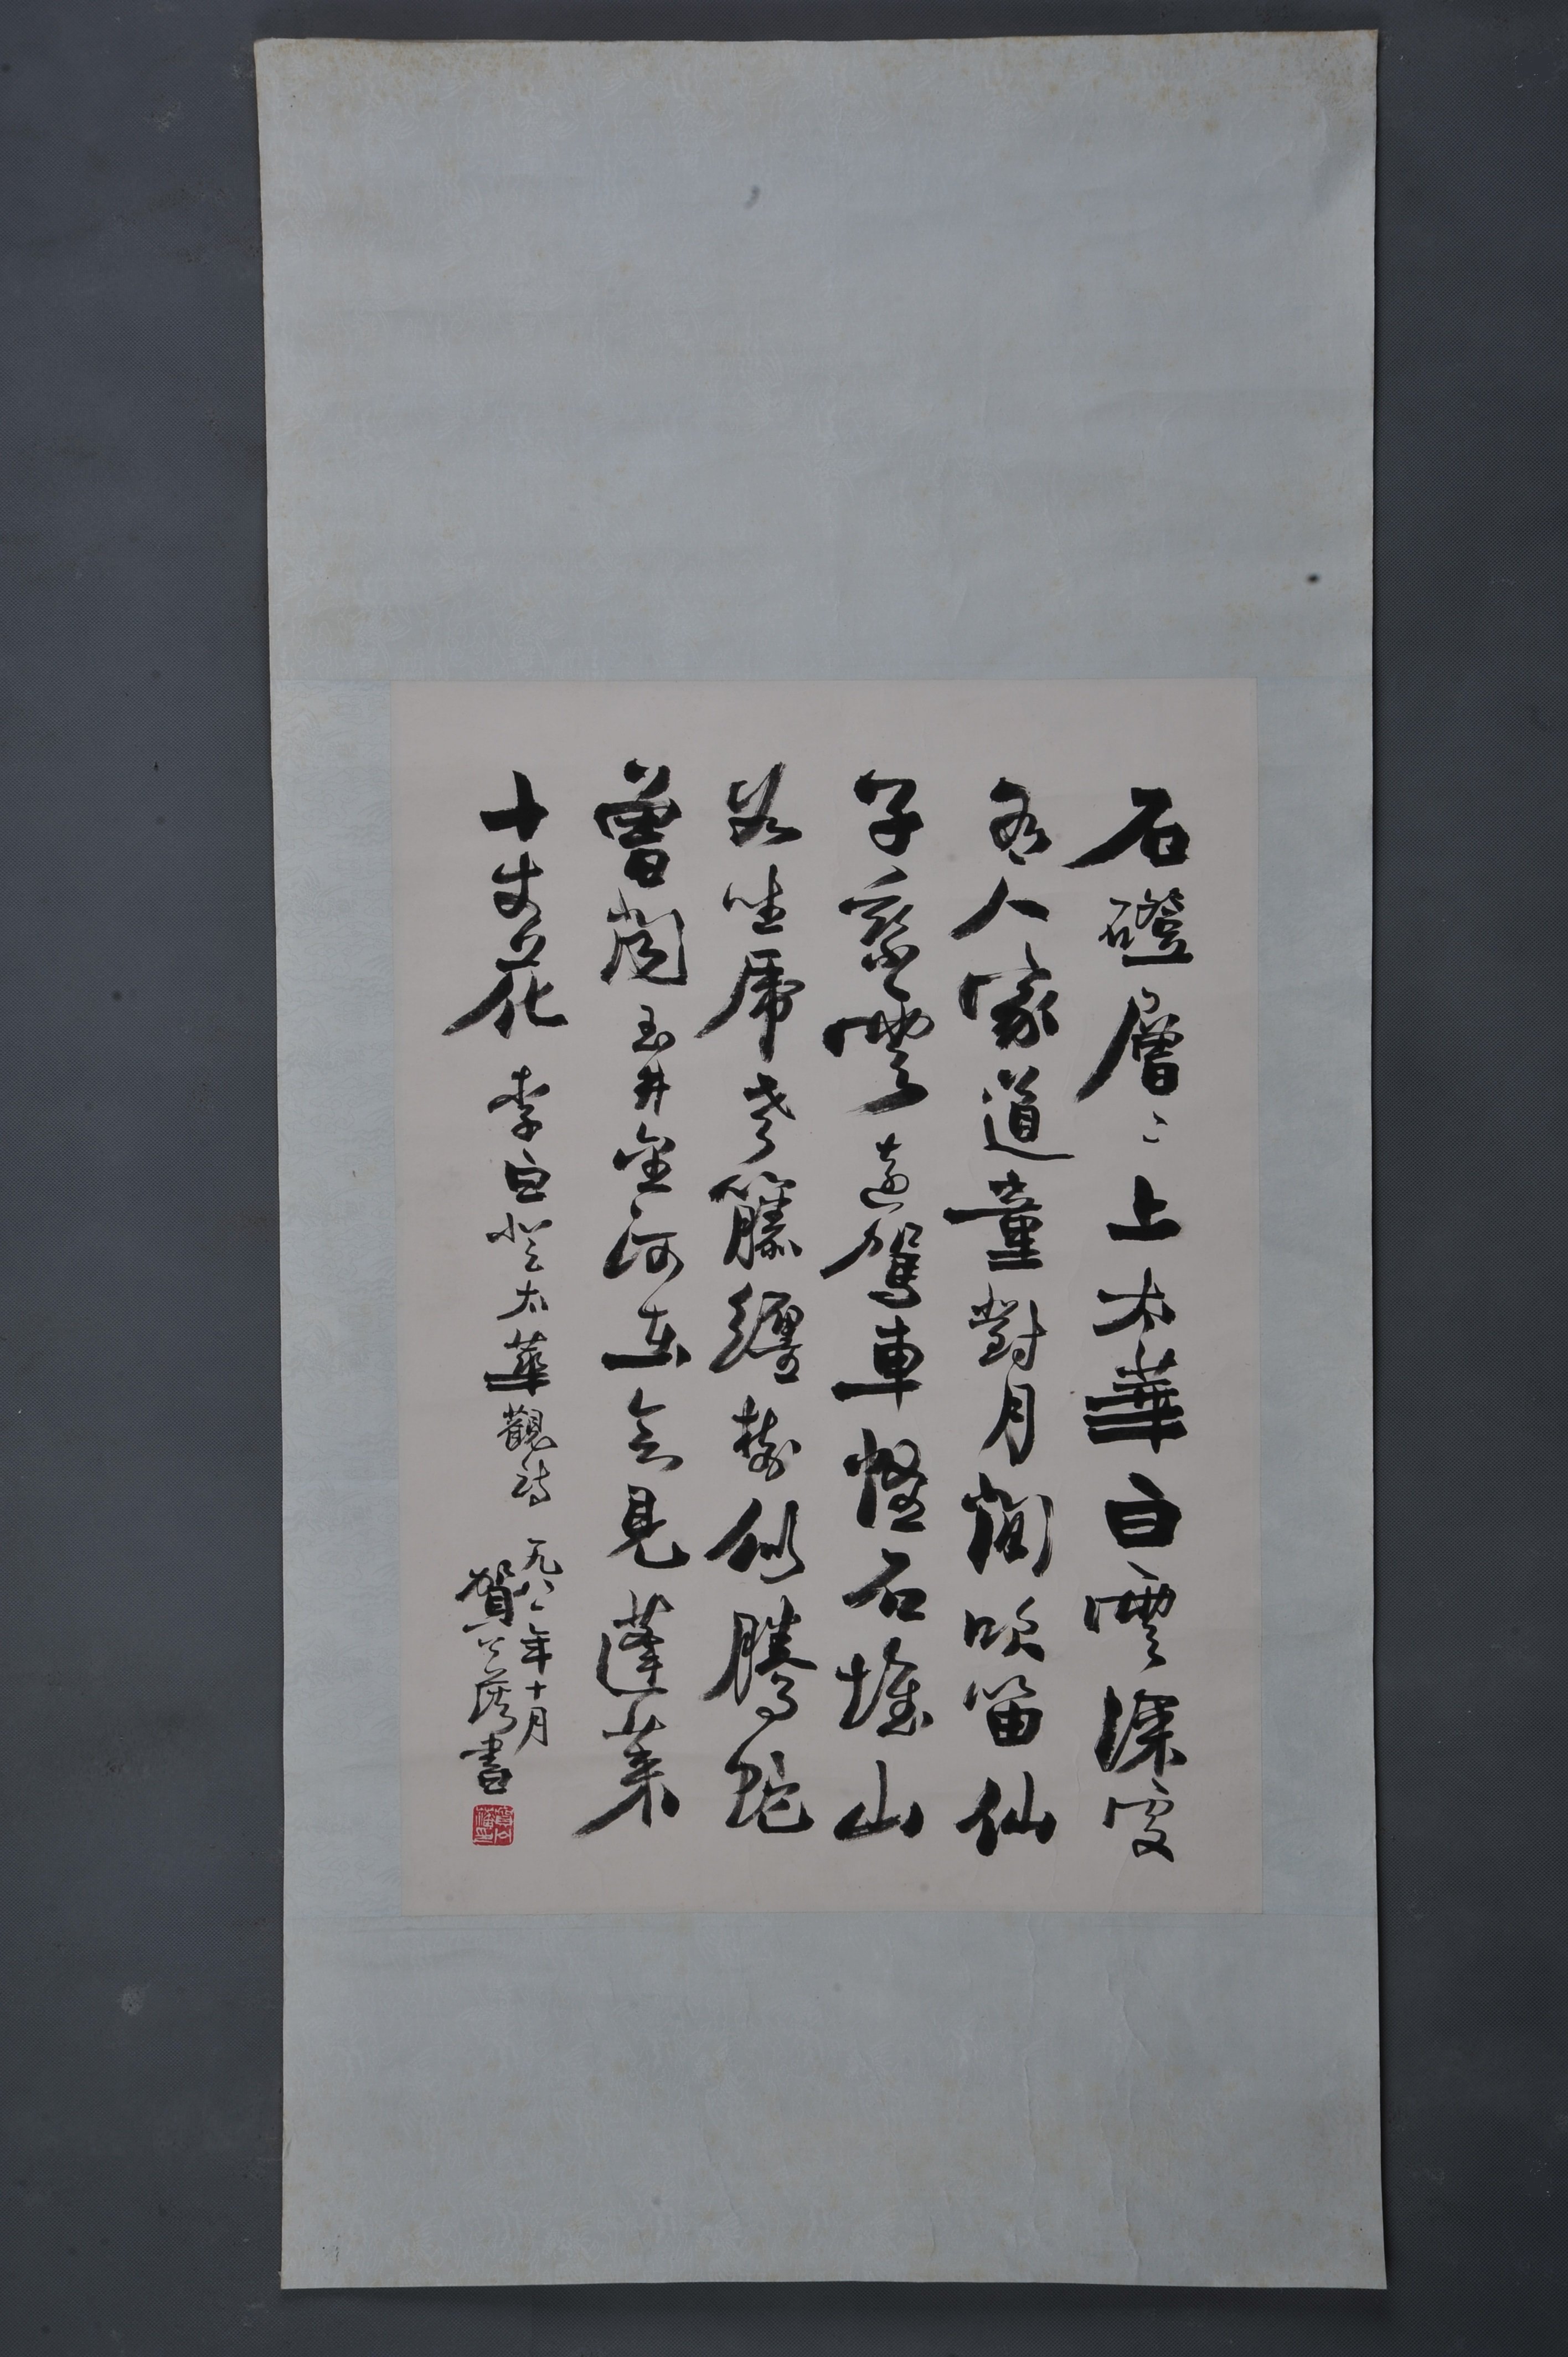 石磴層〻上太華白雲深處
有人家道童對月閒吹笛仙
子乘雲遠駕車怪石堆山
若坐虎老籐纏樹似騰蛇
曾聞玉井金河在會見蓬萊
十丈花 李白登太華觀詩
一九八一年十月
賀公書